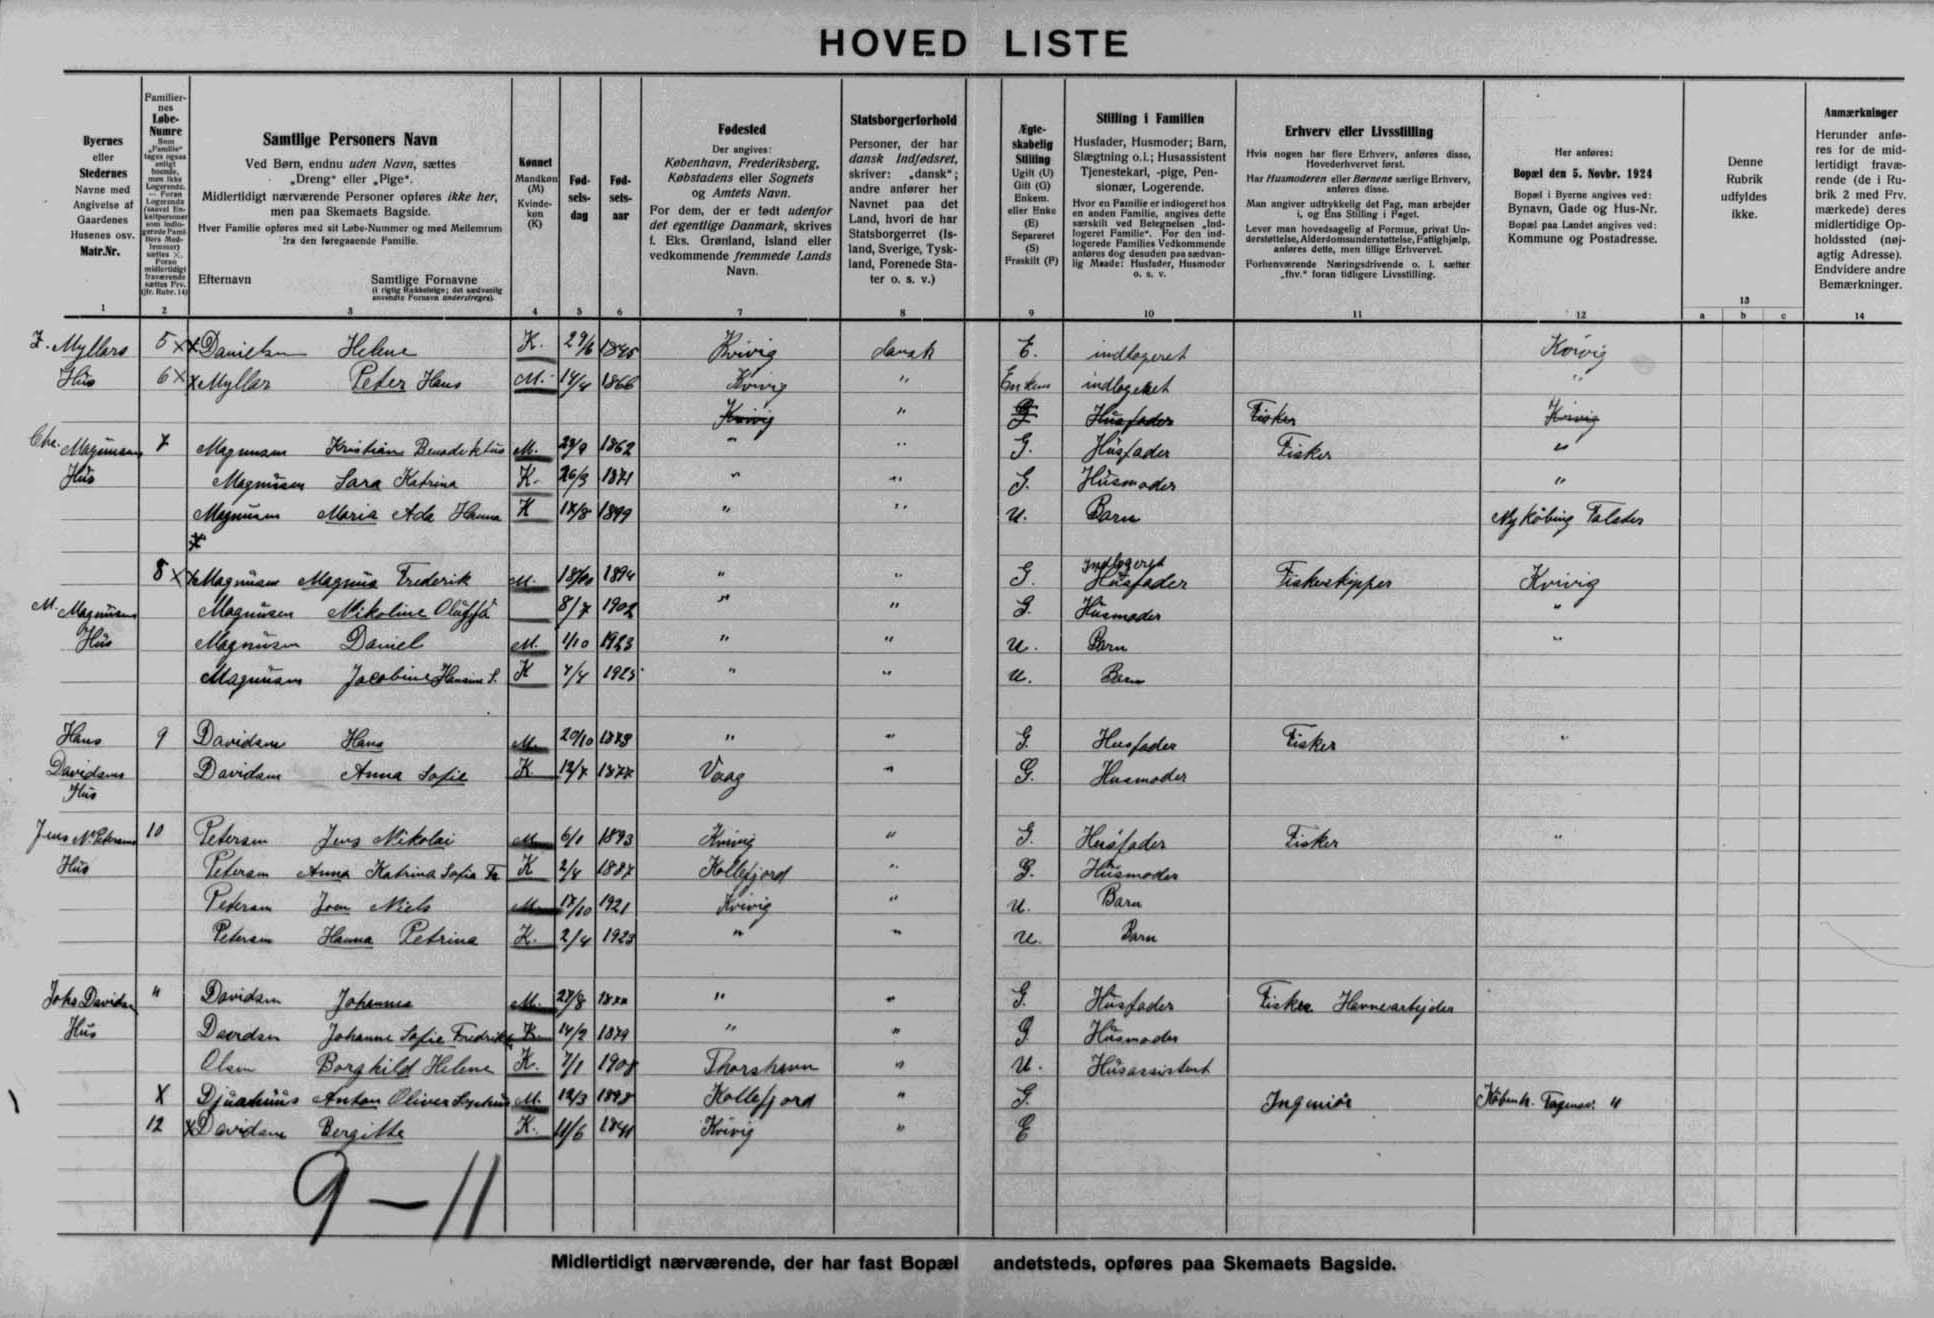 HOVED LISTE
Byernes
eller
Stedernes
Navne med
Angivelse af
Gaardenes
Husenes osv.
Matr.Nr.
1
Familier-
nes
Løbe-
Numre
2
Samtlige Personers Navn
Ved Børn, endnu uden Navn, sættes
„Dreng“ eller „Pige“.
Midlertidigt nærværende Personer opføres ikke her,
men paa Skemaets Bagside.
Hver Familie opføres med sit Løbe-Nummer og med Mellemrum
fra den foregaaende Familie.
Efternavn Samtlige Fornavne
(i rigtig Rækkefølge; det sædvanlig
anvendte Fornavn understreges).
3
Kønnet
Mandkøn
(M)
Kvinde-
køn
(K)
4
Fød-
sels-
dag
5
Fød-
sels-
aar
6
Fødested
Der angives:
København, Frederiksberg,
Købstadens eller Sognets
og Amtets Navn.
For dem, der er født udenfor
det egentlige Danmark, skrives
f. Eks. Grønland, Island eller
vedkommende fremmede Lands
Navn.
7
Statsborgerforhold
Personer, der har
dansk Indfødsret,
skriver: „dansk“;
andre anfører her
Navnet paa det
Land, hvori de har
Statsborgerret (Is-
land, Sverige, Tysk-
land, Forenede Sta-
ter o. s. v.)
8
Ægte-
skabelig
Stilling
Ugift (U)
Gift (G)
Enkem.
eller Enke
(E)
Separeret
(S)
Fraskilt (F)
9
Stilling i Familien
Husfader, Husmoder; Barn,
Slægtning o.l.; Husassistent
Tjenestekarl, -pige, Pen-
sionær, Logerende.
Hvor en Familie er indlogeret hos
en anden Familie, angives dette
særskilt ved Betegnelsen „Ind-
logeret Familie“. For den ind-
logerede Families Vedkommende
anføres dog desuden paa sædvan-
lig Maade: Husfader, Husmoder
o. s. v.
10
Erhverv eller Livsstilling
Hvis nogen har flere Erhverv, anføres disse,
Hovederhvervet først.
Har Husmoderen eller Børnene særlige Erhverv,
anføres disse.
Man angiver udtrykkelig det Fag, man arbejder
i, og Ens Stilling i Faget.
Lever man hovedsagelig af Formue, privat Un-
derstøttelse, Alderdomsunderstøttelse, Fattighjælp,
anføres dette, men tillige Erhvervet.
Forhenværende Næringsdrivende o. l. sætter
„fhv.“ foran tidligere Livsstilling.
11
Her anføres:
Bopæl den 5. Novbr. 1924
Bopæl i Byerne angives ved:
Bynavn, Gade og Hus-Nr.
Bopæl paa Landet angives ved:
Kommune og Postadresse.
12
Denne
Rubrik
udfyldes
ikke.
13
a b c
Anmærkninger
Herunder anfø-
res for de mid-
lertidigt fravæ-
rende (de i Ru-
brik 2 med Frv.
mærkede) deres
midlertidige Op-
holdssted (nøj-
agtig Adresse).
Endvidere andre
Bemærkninger.
14
Myllars 5 x x Danielsen Helene K. 29/6 1845 Kvivig dansk E. indlogeret Kvivig
Hus 6 x x Myllar Peter Hans M. 14/4 1866 Kvivig " Enkem indlogeret "
Kvivig " G Husfader Fisker Kvivig
Chr. Magnusens 7 Magnusen Kristian Benediktus M. 1862 " " G. Husfader Fisker "
Hus Magnusen Sara Katrina K. 26/3 1871 " " G. Husmoder "
Magnusen Maria Ada Hanna K 17/8 1899 " " U. Barn Nykøbing Falster
x
8 x x Magnusen Magnus Frederik M. 18/10 1894 " " G. Indlogeret Husfader Fiskeskipper Kvivig
M. Magnusens Magnusen Nikoline 8/7 1902 " " G. Husmoder "
Hus Magnusen Daniel M. 1/10 1923 " " U. Barn "
Magnusen Jacobine Hansine S. K 7/4 1925 " " U. Barn
Hans 9 Davidsen Hans M. 20/10 1873 " " G. Husfader Fisker "
Davidsens Davidsen Anna Sofie K 12/7 1877 Vaag " G. Husmoder
Hus
Jens N. Petersens 10 Petersen Jens Nikolai M 6/1 1893 Kvivig " G. Husfader Fisker "
Hus Petersen Anna Katrina Sofia Fr K 2/8 1887 Kollefjord " G. Husmoder
Petersen Joen Niels M 17/10 1921 Kvivig " U. Barn
Petersen Hanna Petrina K. 2/4 1923 " " U. Barn
Johs Davidsen " Davidsen Johannes M. 27/8 " " G. Husfader Fisker Havnearbejder
Hus Davidsen Johanne Sofie Fredrikke K 14/2 1879 " " G Husmoder
Olsen Borghild Helene K. 7/1 1908 Thorshavn " U. Husassistent
X Djurhuus Anton Oliver M. 12/3 1898 Kollefjord " G. Ingeniør Københ. Tagensv. 4
12 x Davidsen Bergitte K. 11/6 1841 Kvivig " E
9 — 11
Midlertidigt nærværende, der har fast Bopæl andetsteds, opføres paa Skemaets Bagside.